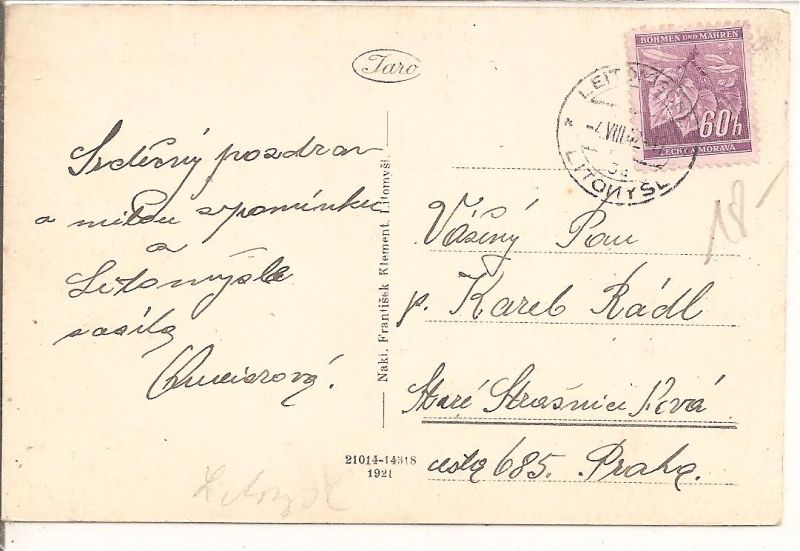 Taro
Srdečný pozdrav
a milou vzpomínku
Litomyšle
zasílá
Nakl. František Klement, Litomyšl.
21014-14318
1921
BÖHMEN UND MÄHREN
60h
ČECHY A MORAVA
LEITOMISCHL
VIII
LITOMYŠL
18-
Vážený Pan
p. Karel Rádl
Staré Strašnice
cesta 685. Praha.